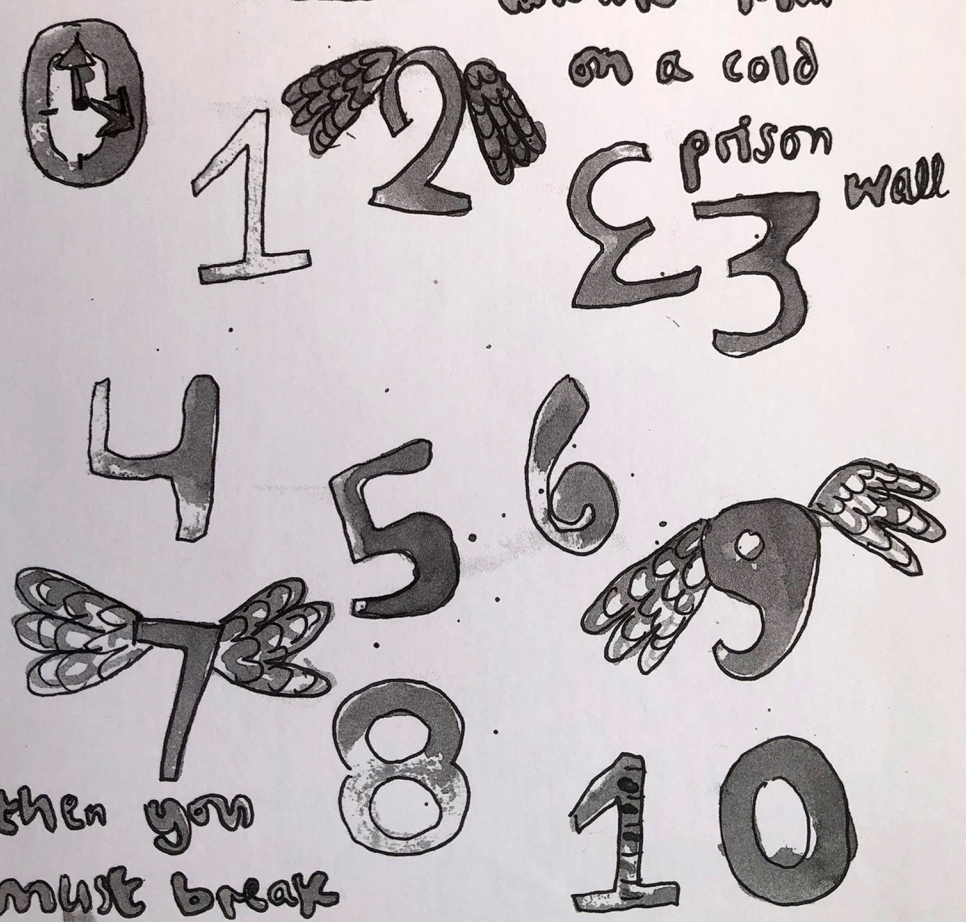 on a cold
prison
wall
0 1 2 £3
4 5 6
7 8 9
10
then you
must break